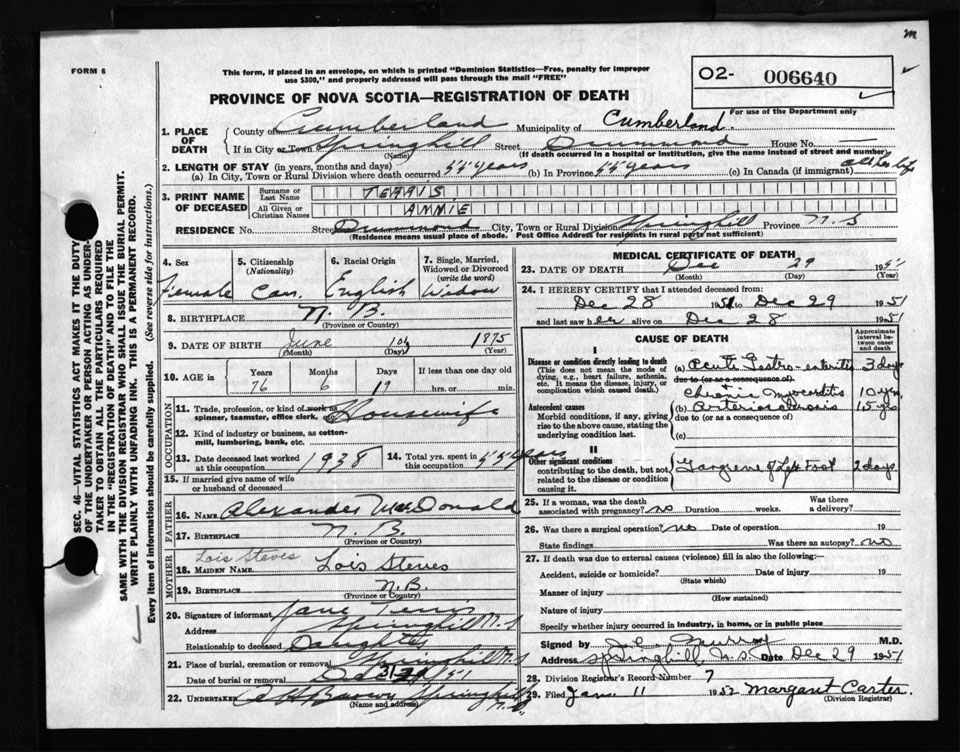 m
FORM 6
This form, if placed in an envelope, on which is printed "Dominion Statistics—Free, penalty for improper
use $300," and properly addressed will pass through the mail "FREE"
O2- 006640
For use of the Department only
PROVINCE OF NOVA SCOTIA—REGISTRATION OF DEATH
1. PLACE OF DEATH
County of Cumberland Municipality of Cumberland.
If in City or Town Springhill Street Drummond House No.
(Name) (If death occurred in a hospital or institution, give the name instead of street and number)
2. LENGTH OF STAY (in years, months and days)
(a) In City, Town or Rural Division where death occurred 55 years (b) In Province 55 years (c) In Canada (if immigrant) all her life
3. PRINT NAME OF DECEASED
Surname or Last Name TERRIS
All Given or Christian Names ANNIE
RESIDENCE No. Street Drummond City, Town or Rural Division Springhill Province N.S
(Residence means usual place of abode. Post Office Address for residents in rural parts not sufficient)
SEC. 46—VITAL STATISTICS ACT MAKES IT THE DUTY
OF THE UNDERTAKER OR PERSON ACTING AS UNDER-
TAKER TO OBTAIN ALL THE PARTICULARS REQUIRED
IN THE "REGISTRATION OF DEATH" AND TO FILE THE
SAME WITH THE DIVISION REGISTRAR WHO SHALL ISSUE THE BURIAL PERMIT.
WRITE PLAINLY WITH UNFADING INK. THIS IS A PERMANENT RECORD.
Every item of information should be carefully supplied. (See reverse side for instructions.)
4. Sex
Female
5. Citizenship
(Nationality)
Can.
6. Racial Origin
English
7. Single, Married,
Widowed or Divorced
(write the word)
Widow
8. BIRTHPLACE N. B.
(Province or Country)
9. DATE OF BIRTH June 10th 1875
(Month) (Day) (Year)
10. AGE in Years Months Days If less than one day old
76 6 19 hrs. or min.
OCCUPATION
11. Trade, profession, or kind of work as
spinner, teamster, office clerk, etc. Housewife
12. Kind of industry or business, as cotton-
mill, lumbering, bank, etc.
13. Date deceased last worked
at this occupation 1938
14. Total yrs. spent in
this occupation 55 years
15. If married give name of wife
or husband of deceased
FATHER
16. NAME Alexander MacDonald
17. BIRTHPLACE N. B.
(Province or Country)
MOTHER
Lois Steves
18. MAIDEN NAME Lois Steeves
19. BIRTHPLACE N.B.
(Province or Country)
20. Signature of informant Jane Terris
Address Springhill N.S
Relationship to deceased Daughter
21. Place of burial, cremation or removal Springhill N.S
Date of burial or removal Dec 31 /51
22. UNDERTAKER A H Brown Springhill
N.S.
(Name and address)
MEDICAL CERTIFICATE OF DEATH
23. DATE OF DEATH Dec 29 1951
(Month) (Day) (Year)
24. I HEREBY CERTIFY that I attended deceased from:
Dec 28 1951 to Dec 29 1951
and last saw her alive on Dec 28 1951
CAUSE OF DEATH
Approximate interval between onset and death
I
Disease or condition directly leading to death
(This does not mean the mode of dying, e.g., heart failure, asthenia, etc. It means the disease, injury, or complication which caused death.)
(a) Acute Gastro-enteritis 3 days
due to (or as a consequence of)
Chronic myocarditis 10 yrs.
Antecedent causes
Morbid conditions, if any, giving rise to the above cause, stating the underlying condition last.
(b) arteriosclerosis 15 yrs
due to (or as a consequence of)
(c)
II
Other significant conditions
contributing to the death, but not related to the disease or condition causing it.
Gangrene of Left Foot 2 days
25. If a woman, was the death
associated with pregnancy? no Duration weeks. Was there a delivery?
26. Was there a surgical operation? no Date of operation 19
State findings Was there an autopsy? no
27. If death was due to external causes (violence) fill in also the following:—
Accident, suicide or homicide? Date of injury 19
(State which)
Manner of injury
(How sustained)
Nature of injury
Specify whether injury occurred in industry, in home, or in public place
Signed by Murray M.D.
Address Springhill, N.S. Date Dec 29 1951
28. Division Registrar's Record Number 7
29. Filed Jan 11 1952 Margaret Carter.
(Division Registrar)